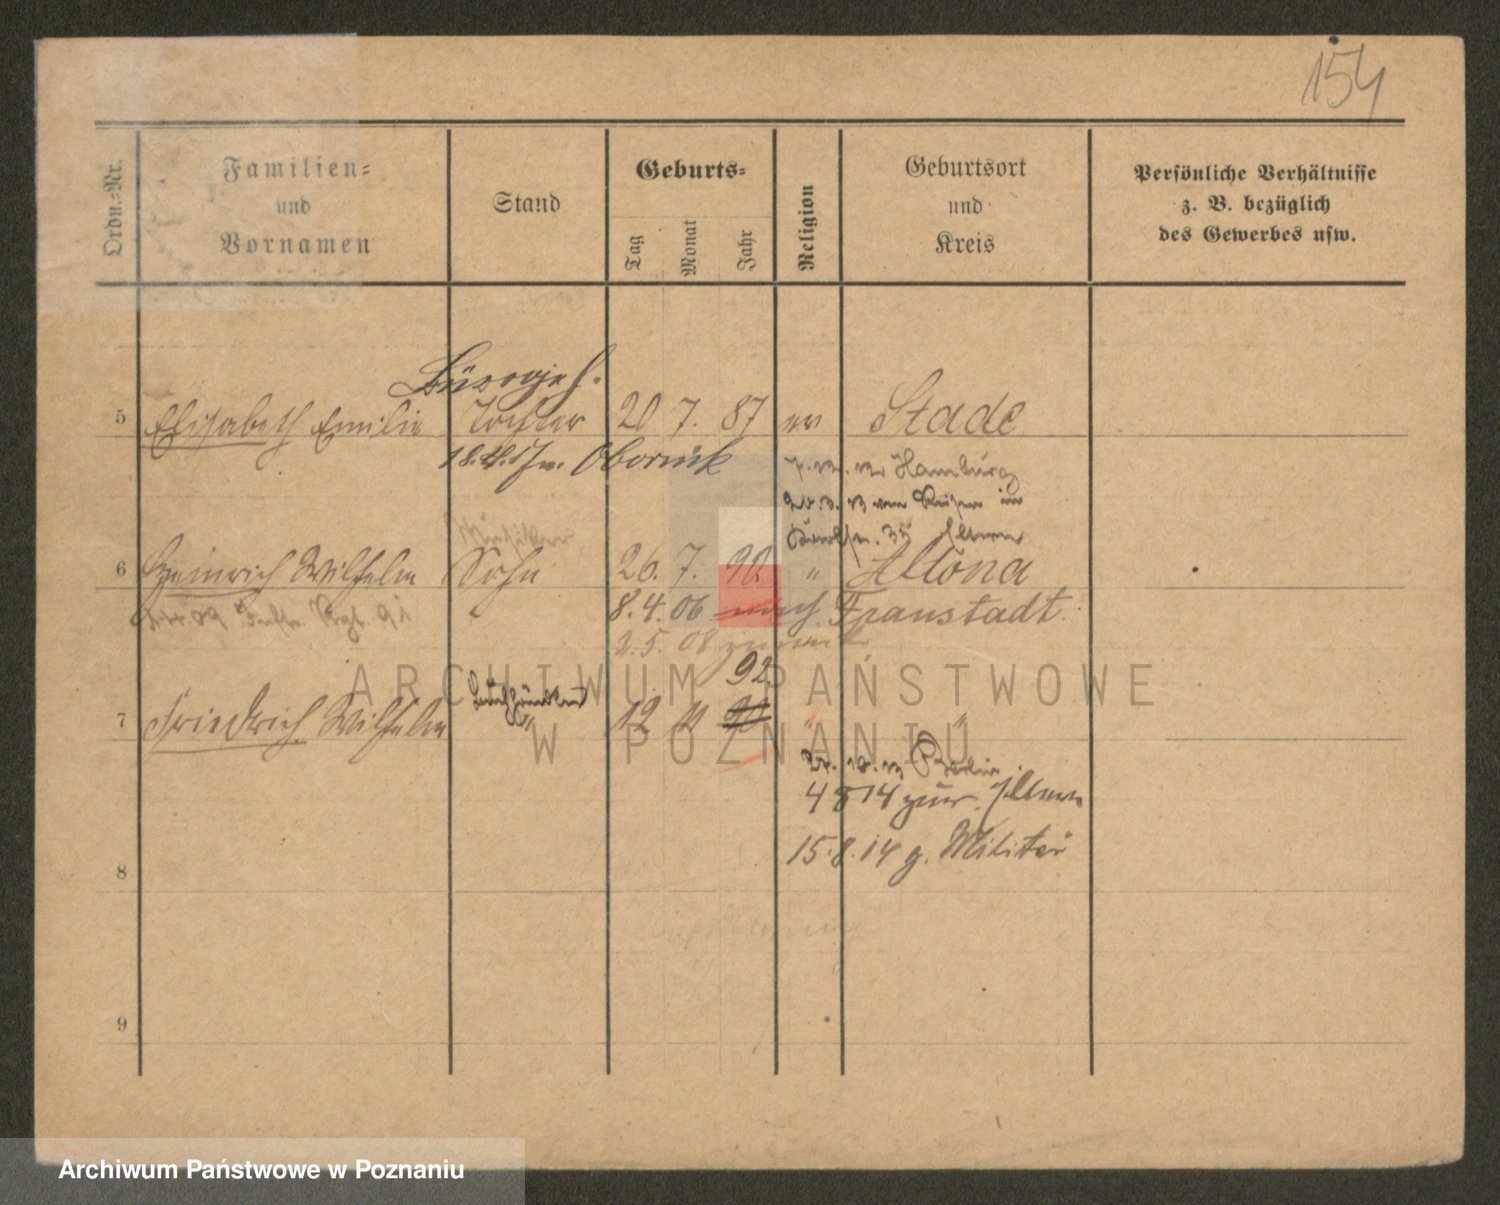 154
Ordn.=Nr.
Familien=
und
Vornamen
Stand
Geburts=
Tag
Monat
Jahr
Religion
Geburtsort
und
Kreis
Persönliche Verhältnisse
z. B. bezüglich
des Gewerbes usw.
5 Elisabeth Emilie Tochter 20 7. 87 ev Stade
Obornik
Hamburg
20.3.13 von Reisen in
35 Eltern
6 Heinrich Wilhelm Sohn 26. 7. 90 " Altona
8.4.06 nach Fraustadt
2.5.08 zurück
92.
7 Friedrich Wilhelm " 12 11 90 " "
Berlin
4 8 14 zur. Eltern
15.8.14 z. Militär
8
9
ARCHIWUM PAŃSTWOWE
W POZNANIU
Archiwum Państwowe w Poznaniu